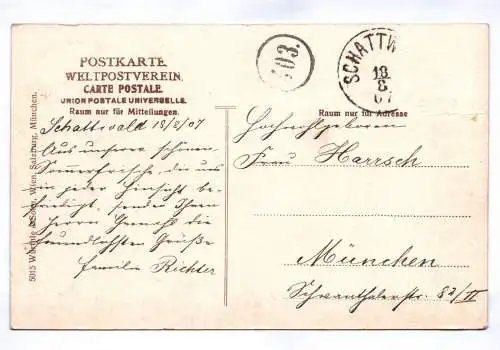 POSTKARTE.
WELTPOSTVEREIN.
CARTE POSTALE.
UNION POSTALE UNIVERSELLE.
Raum nur für Mitteilungen.
Schattwald 18/8/07
Aus unserer schönen
Sommerfrische, die uns
in jeder Hinsicht be-
friedigt, senden Ihnen
Herrn Gemahl die
freundlichsten Grüße
Familie Richter
5015 Würthle & Sohn, Wien, Salzburg, München.
403.
SCHATTW
18
8
07
Raum nur für Adresse
Hochwohlgeboren
Frau Harrsch
München
Schwanthalerstr. 82/II